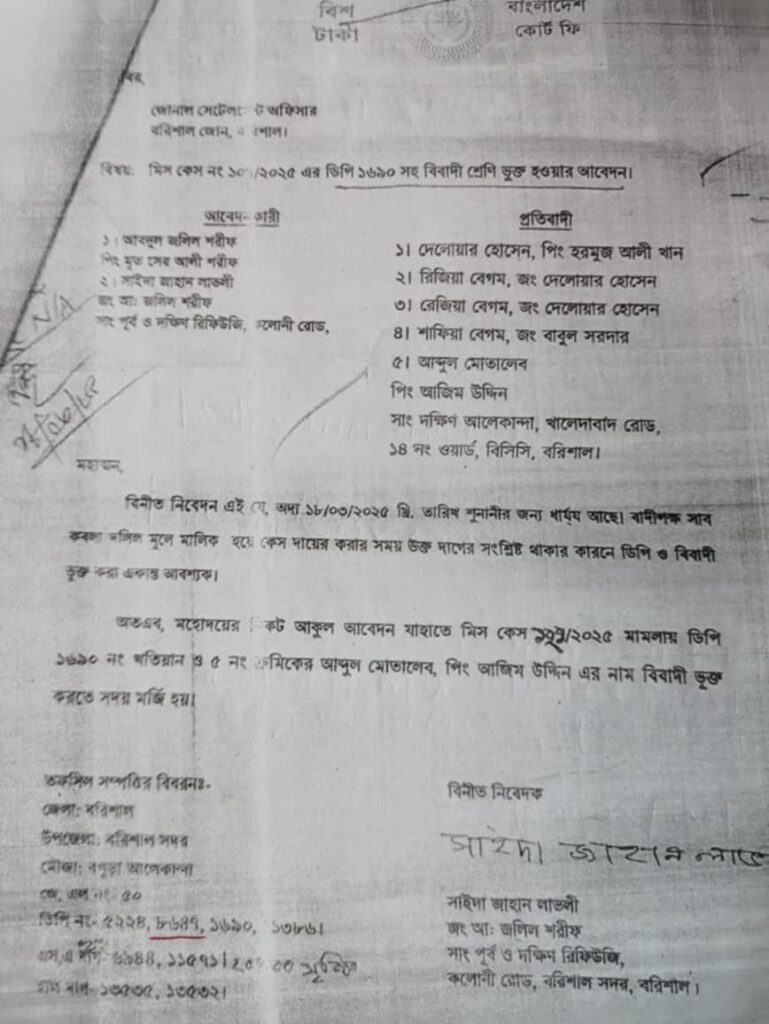 বিশ
টাকা
বাংলাদেশ
কোর্ট ফি
বরাবর,
জোনাল সেটেলমেন্ট অফিসার
বরিশাল জোন, বরিশাল।
বিষয়: মিস কেস নং /২০২৫ এর ডিপি ১৬৯০ সহ বিবাদী শ্রেণি ভুক্ত হওয়ার আবেদন।
আবেদনকারী
১। আবদুল জলিল শরীফ
পিং মৃত মের আলী শরীফ
২। সাইদা জাহান লাভলী
জং আ: জলিল শরীফ
সাং পূর্ব ও দক্ষিণ রিফিউজি, কলোনী রোড,
প্রতিবাদী
১। দেলোয়ার হোসেন, পিং হরমুজ আলী খান
২। রিজিয়া বেগম, জং দেলোয়ার হোসেন
৩। রেজিয়া বেগম, জং দেলোয়ার হোসেন
৪। শাফিয়া বেগম, জং বাবুল সরদার
৫। আব্দুল মোতালেব
পিং আজিম উদ্দিন
সাং দক্ষিণ আলেকান্দা, খালেদাবাদ রোড,
১৪ নং ওয়ার্ড, বিসিসি, বরিশাল।
মহাত্মন,
বিনীত নিবেদন এই যে, অদ্য ১৮/০৩/২০২৫ খ্রি. তারিখ শুনানীর জন্য ধার্য্য আছে। বাদীপক্ষ সাব
কবলা দলিল মূলে মালিক হয়ে কেস দায়ের করার সময় উক্ত দাগের সংশ্লিষ্ট থাকার কারনে ডিপি ও বিবাদী
ভুক্ত করা একান্ত আবশ্যক।
অতএব, মহোদয়ের নিকট আকুল আবেদন যাহাতে মিস কেস /২০২৫ মামলায় ডিপি
১৬৯০ নং খতিয়ান ও ৫ নং ক্রমিকের আব্দুল মোতালেব, পিং আজিম উদ্দিন এর নাম বিবাদী ভুক্ত
করতে সদয় মর্জি হয়।
তফসিল সম্পত্তির বিবরনঃ-
জেলা: বরিশাল
উপজেলা: বরিশাল সদর
মৌজা: বগুড়া আলেকান্দা
জে, এল নং: ৫০
ডিপি নং- ৫২২৪, ৮৬৪৭, ১৬৯০, ১৩৮৬।
এস,এ দাগ- ৬৯৪৪, ১১৫৭১।
হাল দাগ- ১৩৫৩৫, ১৩৫৩২।
বিনীত নিবেদক
সাইদা জাহান লাভ
সাইদা জাহান লাভলী
জং আ: জলিল শরীফ
সাং পূর্ব ও দক্ষিণ রিফিউজি,
কলোনী রোড, বরিশাল সদর, বরিশাল।